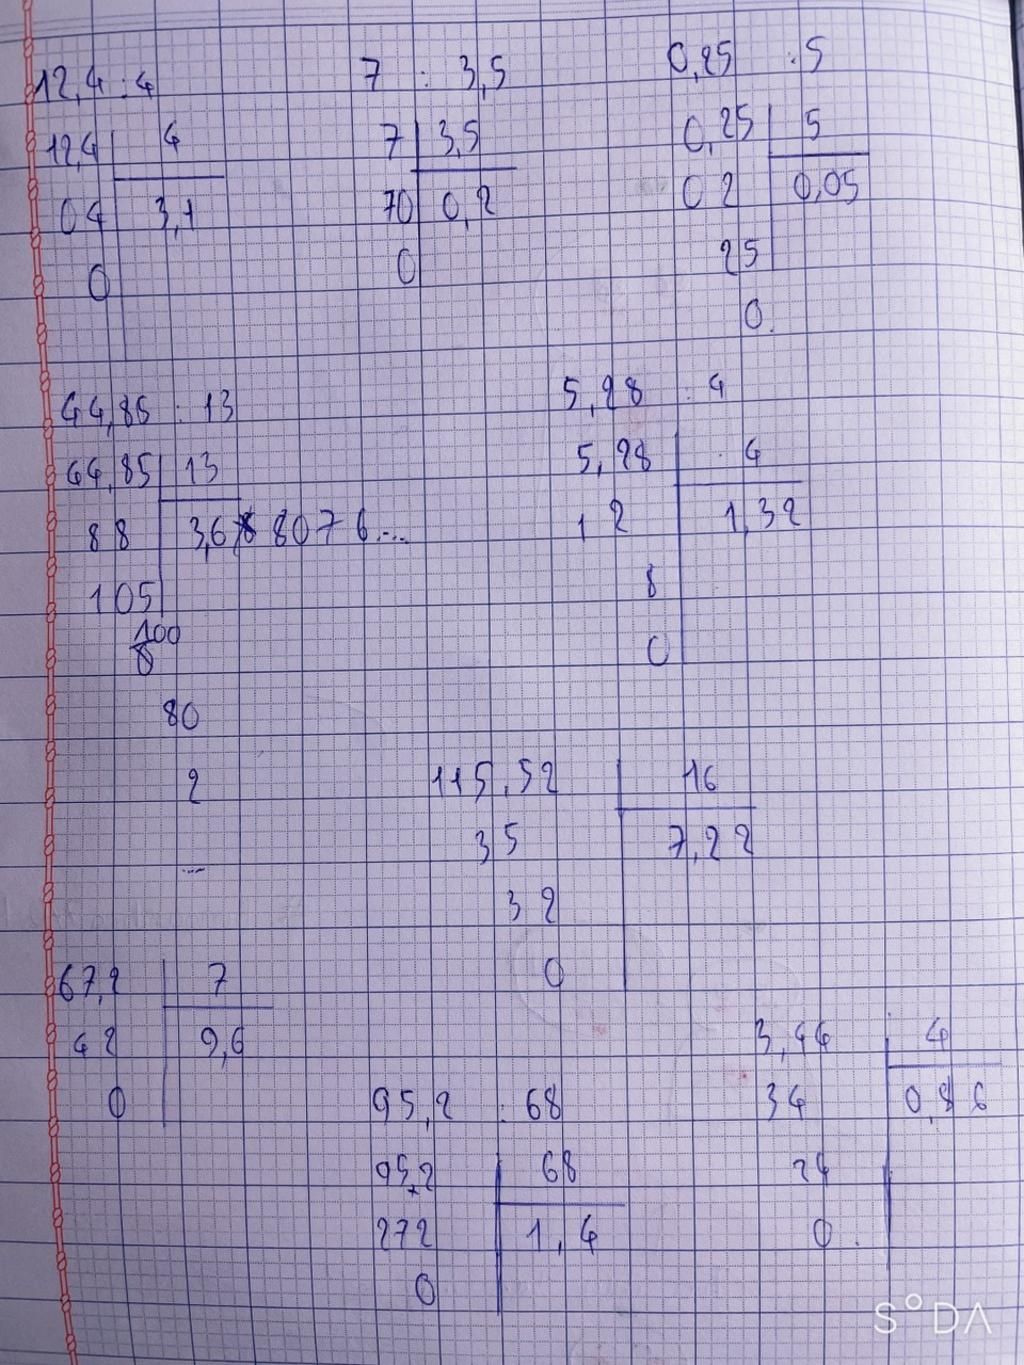 12,4 : 4
12,4 4
04 3,1
0
7 : 3,5
7 3,5
70 0,2
0
0,25 : 5
0,25 5
02 0,05
25
0
44,85 : 13
44,85 13
88 3,6 8076...
105
100
80
2
...
5,28 : 4
5,28 4
12 1,32
8
0
115,52 16
35 7,22
32
0
67,2 7
42 9,6
0
95,2 : 68
95,2 68
272 1,4
0
3,44 4
34 0,86
24
0
S°DA